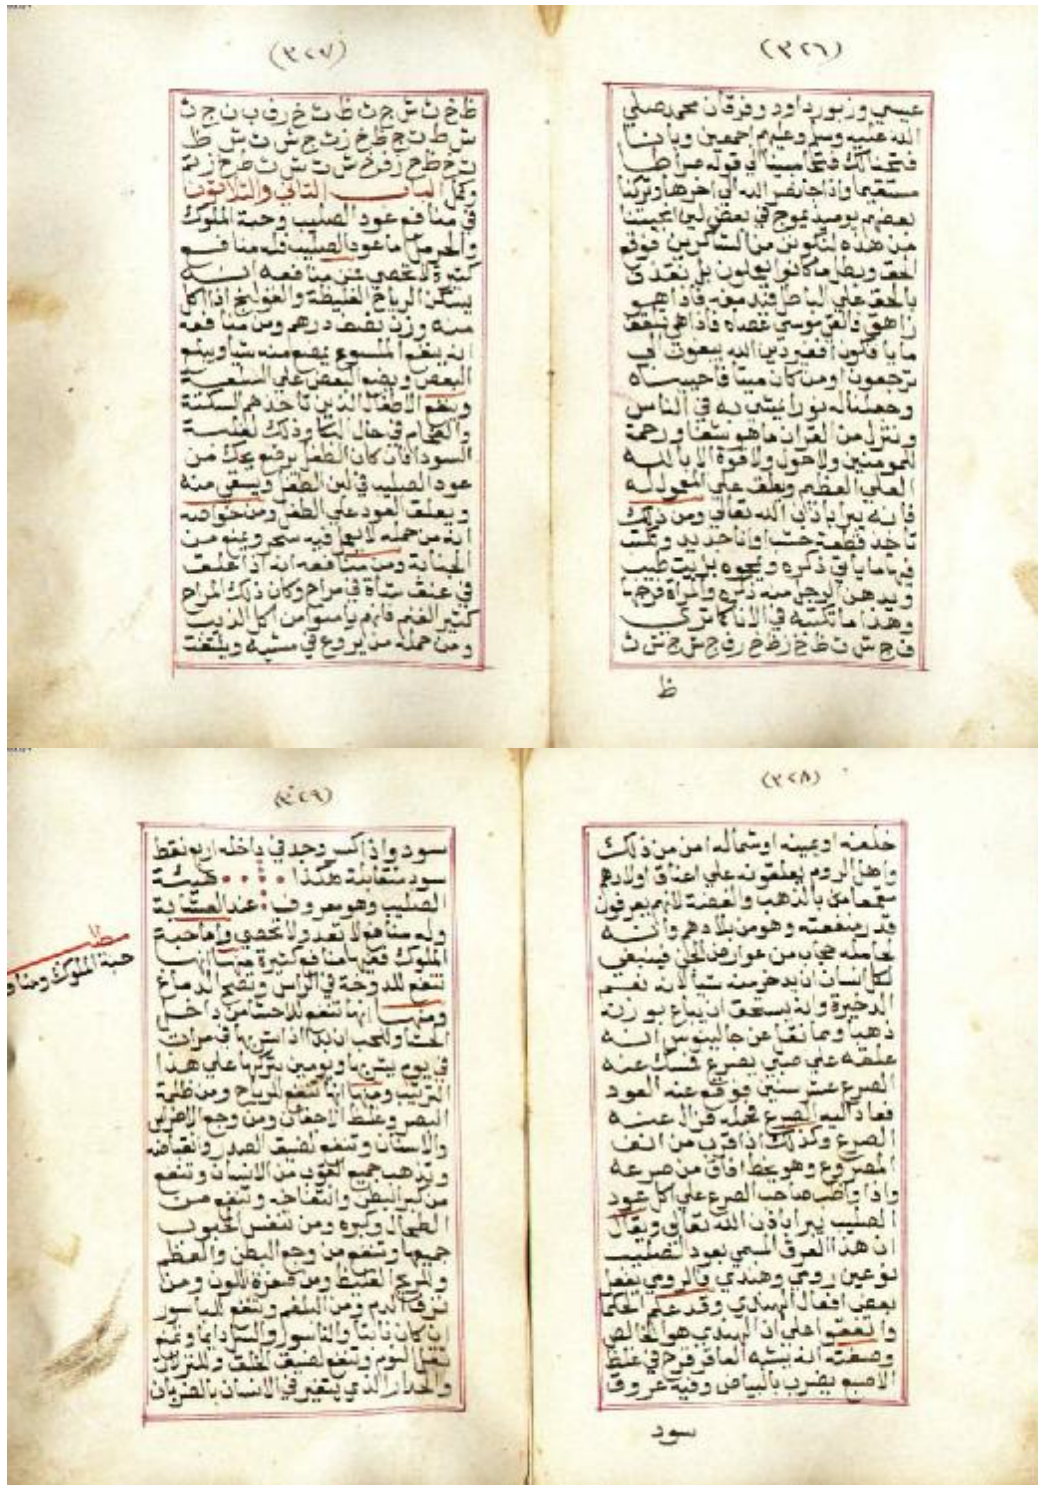 (٣٢٦)
عيسي وزبور داود وفرقان محمد صلي
الله عليه وسلم وعليهم اجمعين وبانا
فتحنا لك فتحا مبينا الي قوله صراطا
مستقيما واذا جا نصر الله الي اخرها وتركنا
بعضهم يوميذ يموج في بعض لين انجيتنا
من هذه لنكونن من الشاكرين فوقع
الحق وبطل ما كانوا يعملون بل نقذف
بالحق علي الباطل فيدمغه فاذا هو
زاهق والقي موسي عصاه فاذا هي تلقف
ما يافكون افغير دين الله يبغون
ترجعون اومن كان ميتا فاحييناه
وجعلنا له نورا يمشي به في الناس
وننزل من القران ما هو شفا ورحمة
للمومنين ولا حول ولا قوة الا بالله
العلي العظيم ويعلق علي المعمول له
فانه يبرا باذن الله تعالي ومن ذلك
تاخذ قطعة خشب او انا حديد وتكتب
فيها ما ياتي ذكره وتمحوه بزيت طيب
ويدهن الرجل منه ذكره والمراة فرجها
وهذا ما تكتبه في الانا كما تري
ظ
(٣٢٧)
وكمل الباب الثاني والثلاثون
في منافع عود الصليب وحبة الملوك
والحرمل اما عود الصليب فله منافع
كثيرة لا تحصي فمن منافعه انه
يسكن الرياح الغليظة والقولنج اذا اكل
منه وزن نصف درهم ومن منافعه
انه ينفع الملسوع يمضغ منه شيا ويبلع
البعض ويضع البعض علي اللسعة
وينفع الاطفال الذين تاخذهم السكتة
في حال البكا وذلك لغلبة
السودا فان كان الطفل يرضع يحك من
عود الصليب في لبن الطفل ويسقي منه
ويعلق العود علي الطفل ومن خواصه
انه من حمله لا يعمل فيه سحر وينفع من
ومن منافعه انه اذا علق
في عنق شاة في مراح وكان ذلك المراح
كثير الغنم فانهم يامنوا من اكل الذيب
ومن حمله من يروع في مشيه ويلتفت
(٣٢٨)
خلفه او يمينه او شماله امن من ذلك
واهل الروم يعلقونه علي اعناق اولادهم
بالذهب والفضة لانهم يعرفون
قدر منفعته وهو من بلادهم وانه
لحامله حجاب من عوارض الجن فينبغي
لكل انسان ان يدخر منه شيا لانه نعم
الدخيرة وانه يستحق ان يباع بوزنه
ذهبا ومما نقل عن جالينوس انه
علقه علي صبي يصرع فمسك عنه
الصرع عشر سنين فوقع عنه العود
فعاد اليه الصرع فحمله فزال عنه
الصرع وكذلك اذا قرب من انف
المصروع وهو يخط افاق من صرعه
واذا واضب صاحب الصرع علي اكل عود
الصليب يبرا باذن الله تعالي ويقال
ان هذا العرق المسمي بعود الصليب
نوعين رومي وهندي والرومي يفعل
بعض افعال الهندي وقد علم الحكما
واتفقوا علي ان الهندي هو الخالص
وصفته انه يشبه العاقر قرح في غلظ
الاصبع يضرب بالبياض وفيه عروق
سود
(٣٢٩)
سود واذا كسر وجد في داخله اربع نقط
سود متقابلة هكذا هيئة
الصليب وهو معروف عند
وله منافع لا تعد ولا تحصي واما حبة
الملوك ففيها منافع كثيرة منها انها
تنفع للدوخة في الراس وتفتح الدماغ
ومنها انها تنفع للاحشا من داخل
في يوم يشربها ويومين يتركها علي هذا
الترتيب ومنها انها تنفع للرياح ومن ظلمة
البصر وغلظ الاجفان ومن وجع الاضراس
والاسنان وتنفع لضيق الصدر وانقباضه
وتذهب جميع القوب من الانسان وتنفع
من كبر البطن وانتفاخه وتنفع من
الطحال وكبره ومن تنفس الحبوب
جميعها وتنفع من وجع البطن والعظم
وللريح الغليظ ومن صفرة اللون ومن
نزف الدم ومن البلغم وتنفع للباسور
ان كان نابتا والناسور والسل دايما وتنفع
ثقل النوم وتنفع لضيق الخلق وللنزلات
والحدار الذي يتغير في الانسان بالضربان
مطلب
حبة الملوك ومنافع